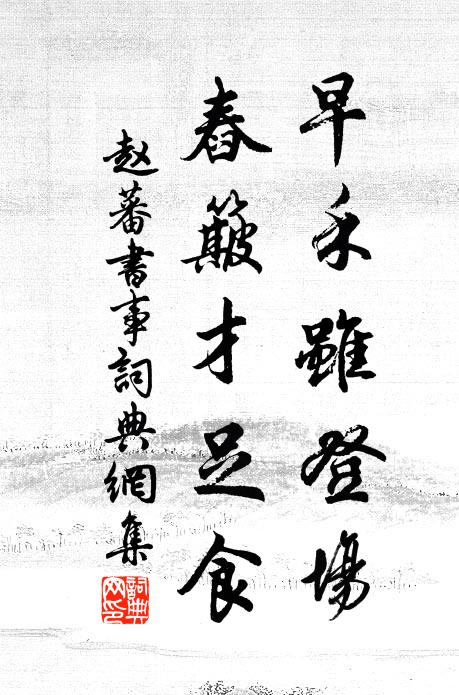 早禾雖登場
舂簸才足食
赵蕃書事詞典網集
詞典网印